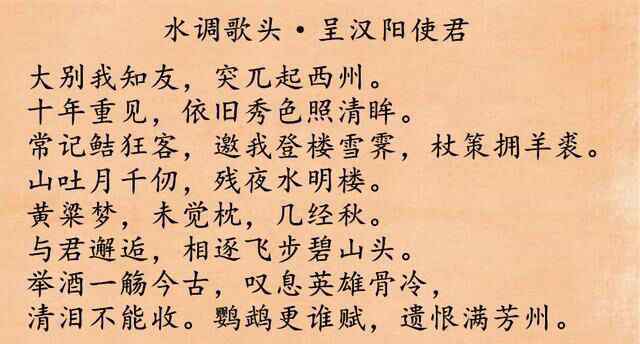 水调歌头·呈汉阳使君
大别我知友，突兀起西州。
十年重见，依旧秀色照清眸。
常记鲒狂客，邀我登楼雪霁，杖策拥羊裘。
山吐月千仞，残夜水明楼。
黄粱梦，未觉枕，几经秋。
与君邂逅，相逐飞步碧山头。
举酒一觞今古，叹息英雄骨冷，
清泪不能收。鹦鹉更谁赋，遗恨满芳州。